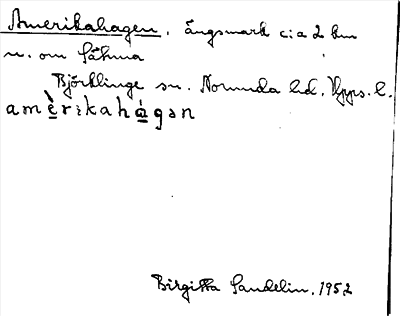 Amerikahagen, ängsmark c:a 2 km
n. om Såhma
Björklinge sn. Norunda hd. Upps. l.
amè̱rıkahá̱gən
Birgitta Sandelin. 1952